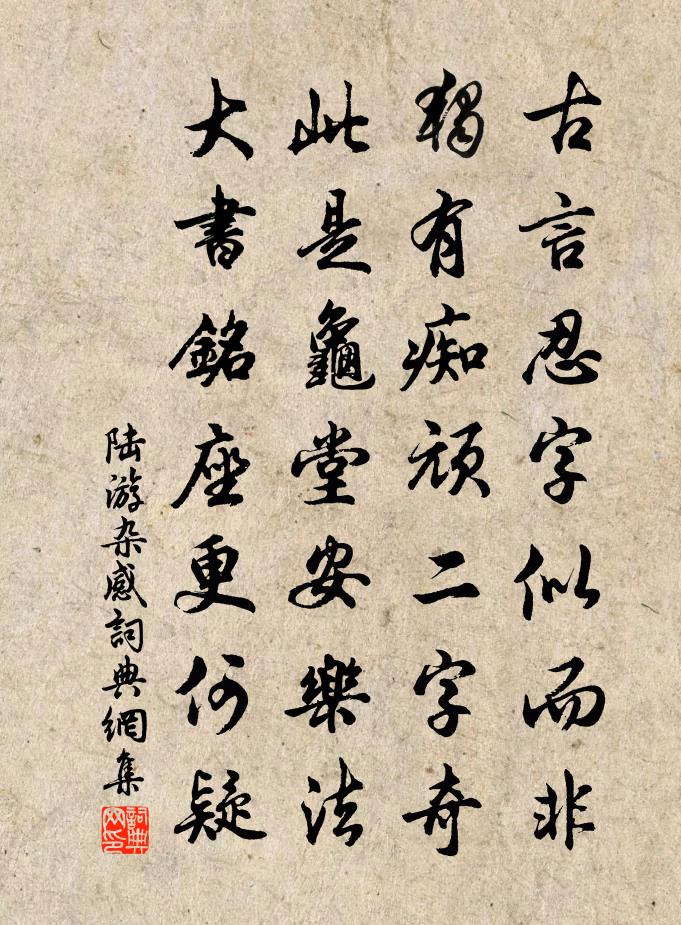 古言忍字似而非
獨有痴頑二字奇
此是龜堂安樂法
大書銘座更何疑
陆游杂感詞典網集
詞典网印